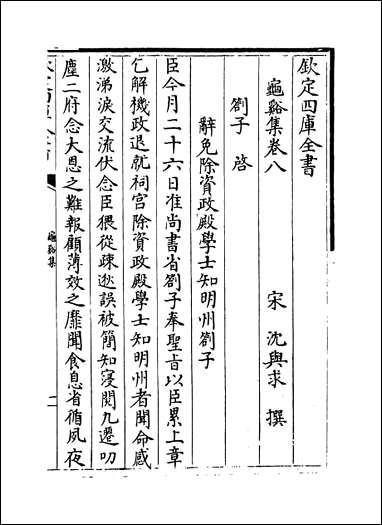 欽定四庫全書
龜谿集卷八
宋 沈與求 撰
劄子 啓
辭免除資政殿學士知明州劄子
臣今月二十六日准尚書省劄子奉聖旨以臣累上章
乞解機政退就祠宮除資政殿學士知明州者聞命感
激涕淚交流伏念臣猥從疎逖誤被簡知寖閱九遷叨
塵二府念大恩之難報顧薄效之靡聞食息省循夙夜
龜谿集
二